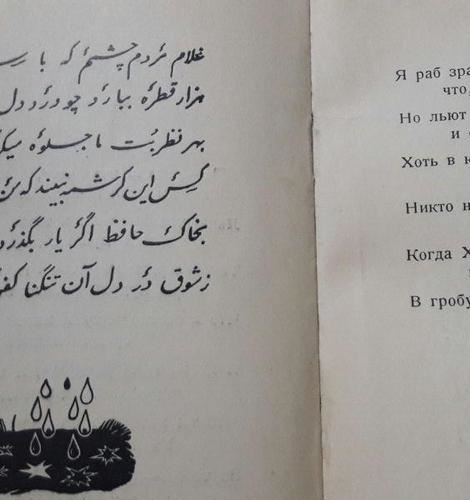 غلام مردم چشمم که با
هزار قطره ببارد چو درد دل
بهر نظر بت ما جلوه میک
کس این کرشمه نبیند که
بخاک حافظ اگر یار بگذرد
ز شوق در دل آن تنگنا کف
Я раб зра
что,
Но льют
и
Хоть в
Никто н
Когда Х
В гробу